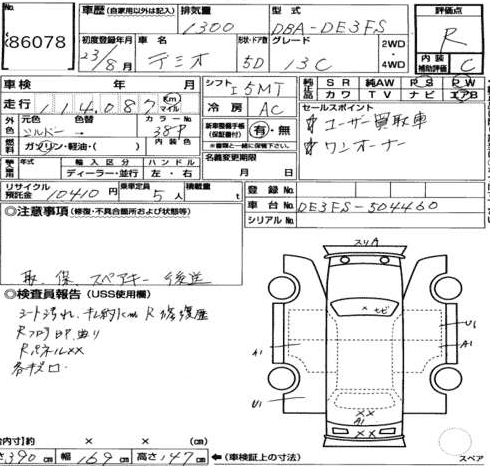 No. 車歴 (自家用以外は記入) 排気量 型式 評価点
86078 1300 DBA-DE3FS R
初度登録年月 車名 形状・ドア数 グレード 2WD 内装
23/8月 デミオ 5D 13C 4WD 補助評価 C
車検 年 月 シフト I5MT 純正品 SR 純AW PS PW
走行 114,087 Km マイル 冷房 AC カワ TV ナビ エアB
外色 元色 色替 カラーNo. 新車整備手帳 (保証書付) 有・無 セールスポイント
シルバー → 38P ※書類と一緒に保管下さい。 ☆ユーザー買取車
燃料 ガソリン・軽油・( ) 内装色 名義変更期限 ☆ワンオーナー
年式 輸入区分 ハンドル 月 日
ディーラー・並行 左・右
リサイクル預託金 10410円 乗車定員 5人 積載量 t 登録No.
◎注意事項 (修復・不具合箇所および状態等) 車台No. DE3FS-504460
シリアルNo.
取、保、スペアキー 後送
スリA
◎検査員報告 (USS使用欄)
シート汚れ、キレ約1cm R修復歴
Rフロア凹、曲り
Rパネル××
各キズ凹
× セビ
U1
A1
A1
U1
××
A1
××
内寸)約 × × (cm)
さ390cm 幅 169cm 高さ147cm ←(車検証上の寸法)
スペア